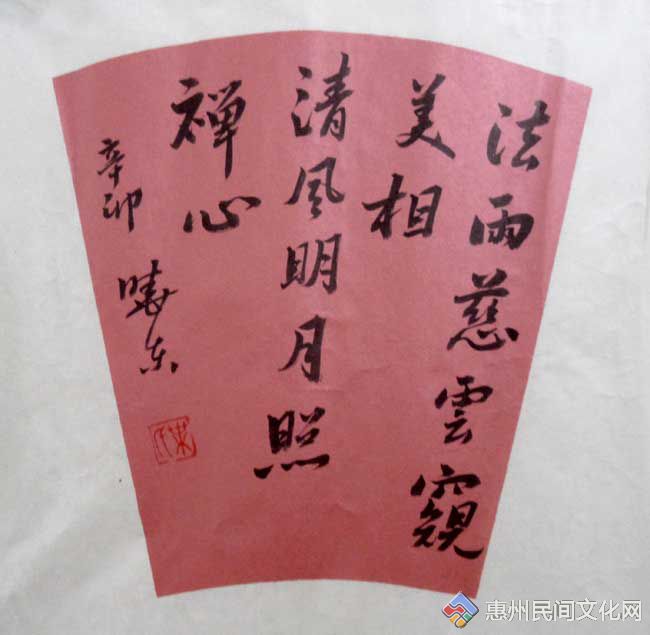 法雨慈雲窺
美相
清风明月照
禅心
辛卯
晓东
惠州民间文化网